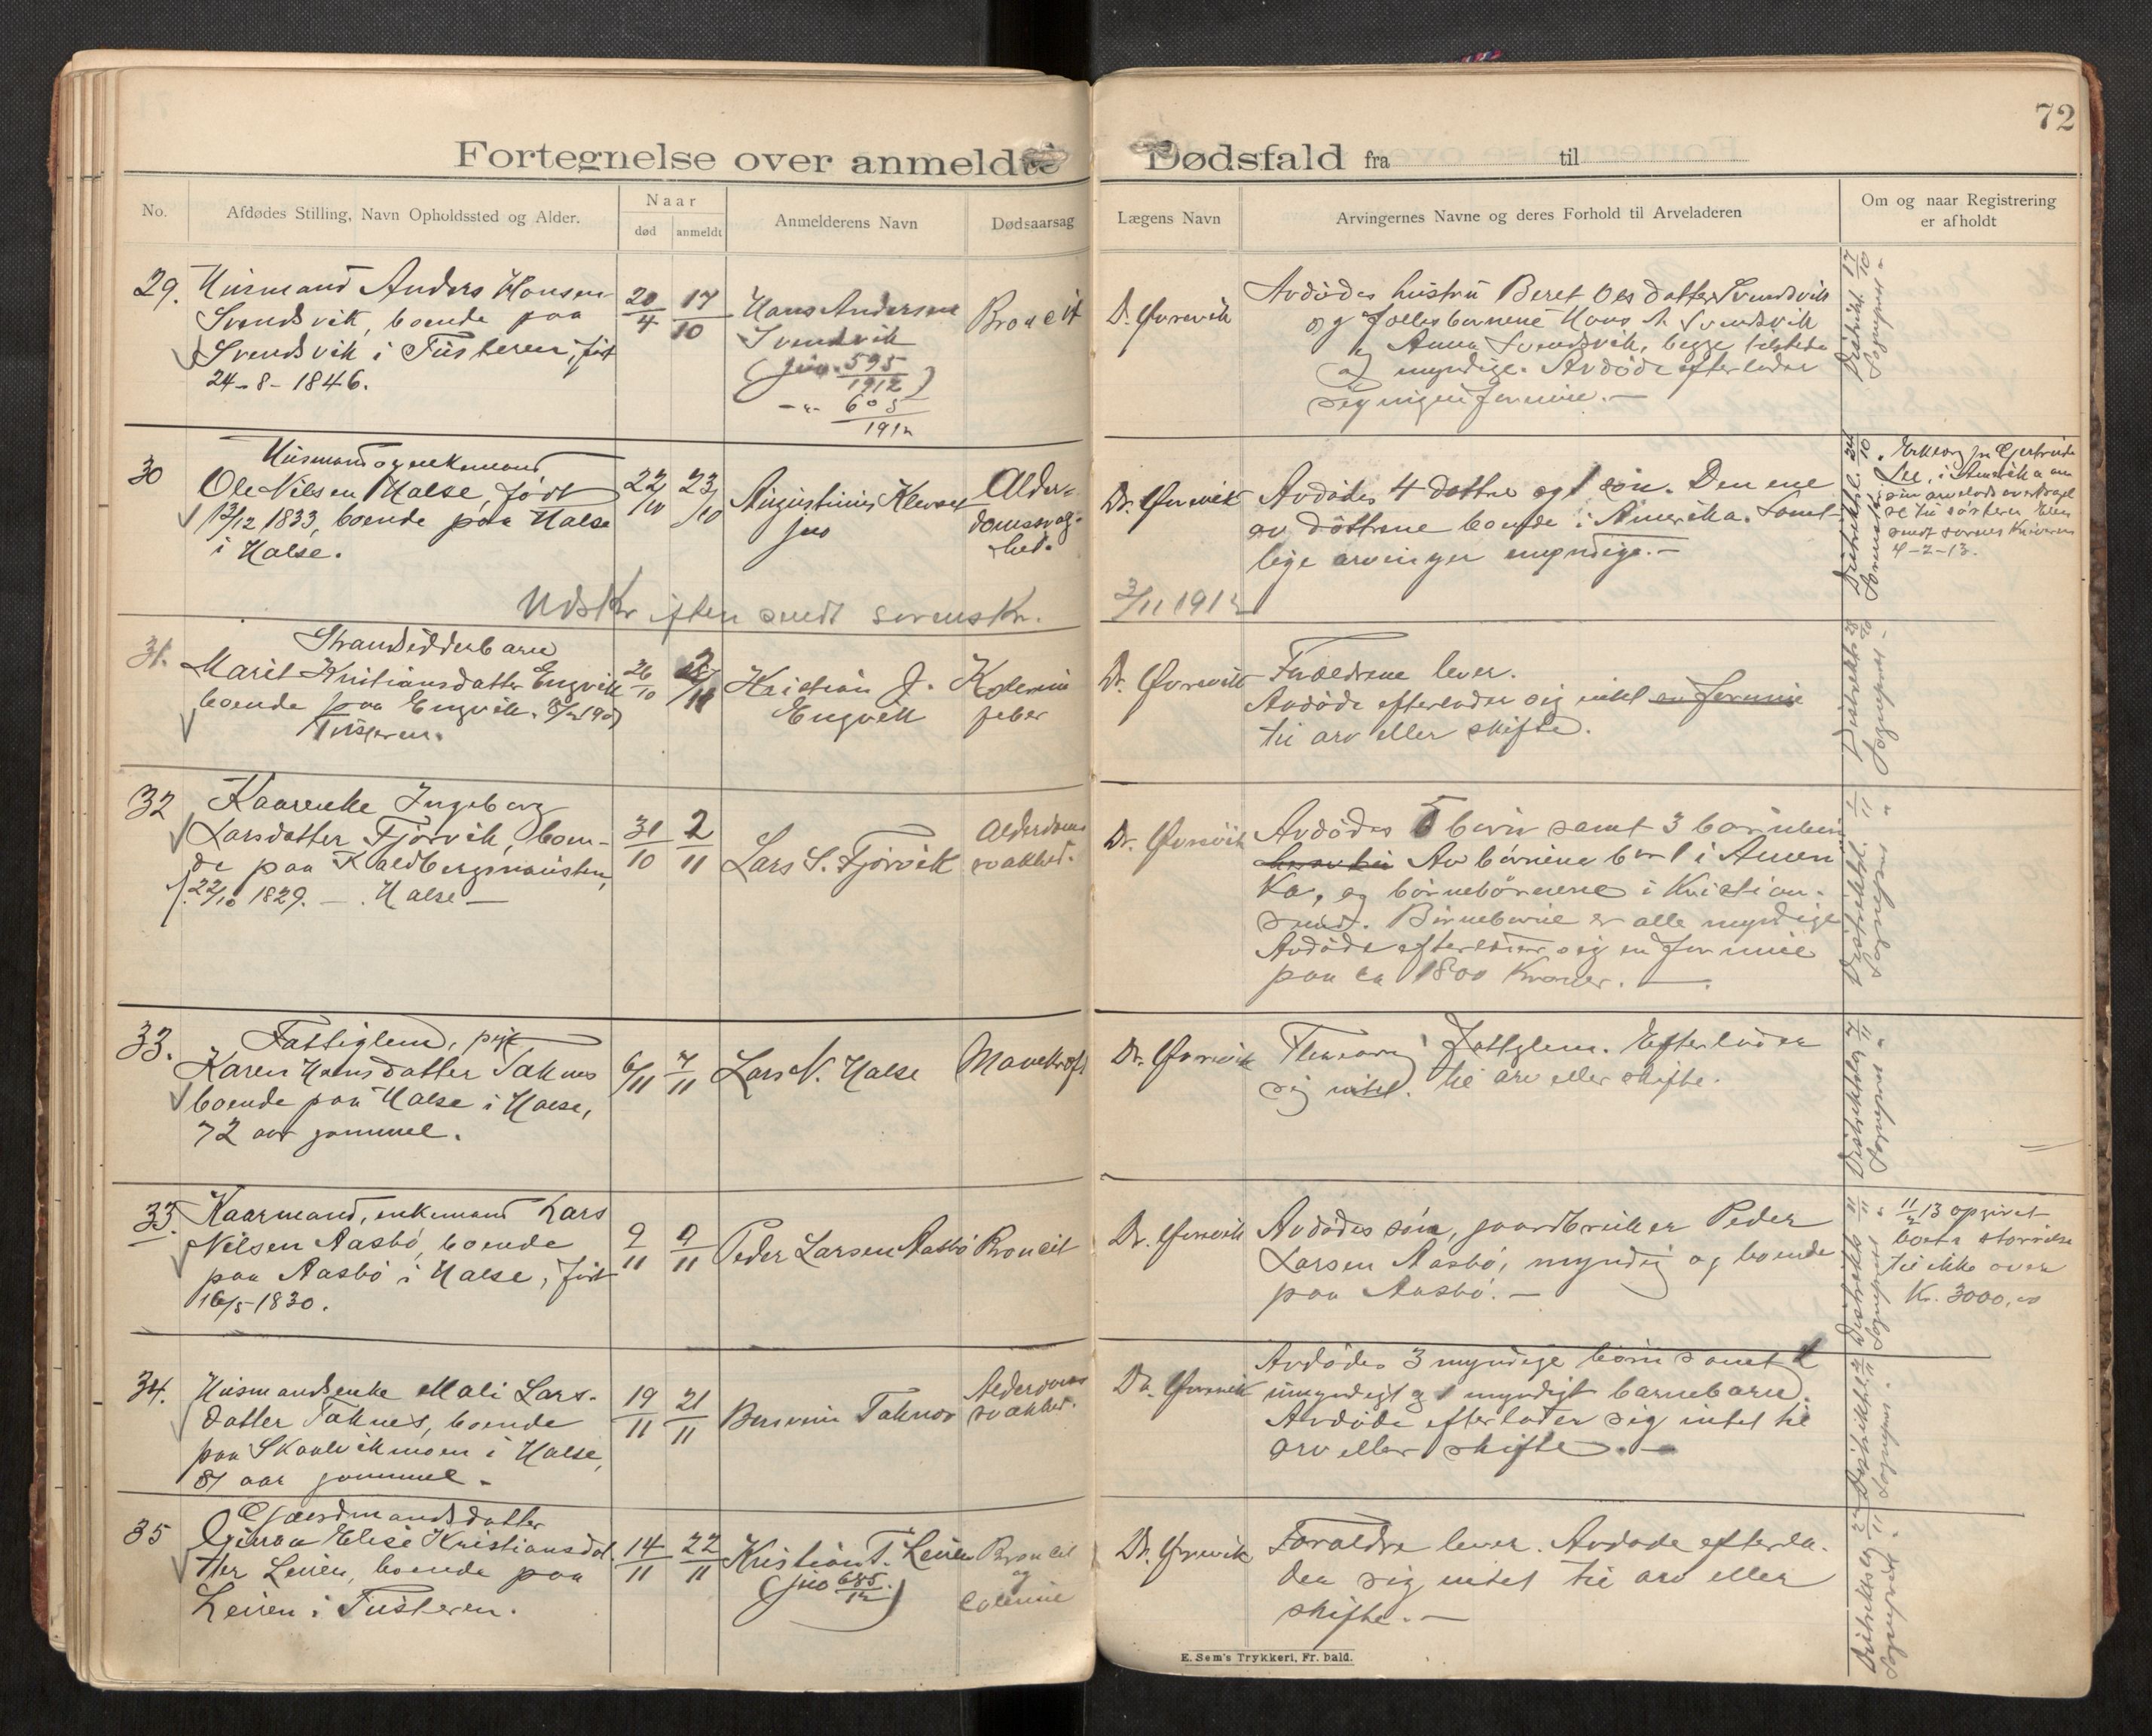 72
Fortegnelse over anmeldte Dødsfald fra til
No.
Afdødes Stilling, Navn Opholdssted og Alder.
Naar
død
anmeldt
Anmelderens Navn
Dødsaarsag
Lægens Navn
Arvingernes Navne og deres Forhold til Arveladeren
Om og naar Registrering
er afholdt
29.
Husmand Anders Hansen
Svendsvik, boende paa
Svendsvik i Tusteren, født
24-8-1846.
20/4
17/10
Hans Andersen
Svendsvik
(jno. 595/1912)
-"- 605/1912
Broncit
Dr. Øvrevik
Avdødes hustru Beret Olsdatter Svendsvik
og fællesbørnene Hans A. Svendsvik
og Anna Svendsvik, begge tilstede
og myndige. Avdøde efterlader
sig ingen formue.-
Distriktsl. 17/10
Sogneprest "
30
Husmand og enkemand
Ole Nilsen Halse, født
13/12 1833, boende paa Halse
i Halse.
22/10
23/10
Augustinius Klevset
jno
Alder-
domssvag-
het.
Dr. Øvrevik
Avdødes 4 døttre og 1 søn. Den ene
av døttrene boende i Amerika. Samt-
lige arvinger myndige.-
Distriktsl. 24/10
Erklæring fra Gjertrude
Lee, i Amerika om
sin arvelods overdragel
se til søsteren
sendt sorenskriveren
4-2-13.
Udskriften sendt sorenskr. 2/11 1912
31.
Strandsidderbarn
Marit Kristiansdatter Engvik
boende paa Engvik,
Tusteren.
26/10
2/11
Kristian J.
Engvik
Kolerin
feber
Dr. Øvrevik
Forældrene lever.
Avdøde efterlader sig intet en formue
til arv eller skifte.
Sogneprest "
32
Kaarenke Ingeborg
Larsdatter Fjørvik, boen-
de paa Kaldbergsnausten,
f. 22/10 1829. - Halse -
31/10
2/11
Lars S. Fjørvik
Alderdoms
svakhet.
Dr. Øvrevik
Avdødes 5 børn samt 3 børnebørn
Av børnene bor 1 i Ameri
ka, og børnebørnene i Kristian-
sund. Børnebørnene er alle myndige
Avdøde efterlater sig en formue
paa ca 1800 Kroner. -
Distriktsl. 1/11
Sogneprest "
33.
Fattiglem, pike
Karen Hansdatter Taknes
boende paa Halse i Halse,
72 aar gammel.
6/11
7/11
Lars N. Halse
Mavekræft
Dr. Øvrevik
Fattiglem. Efterlader
sig intet til arv eller skifte.
Distriktslæge 7/11
Sogneprest "
33.
Kaarmand, enkemand Lars
Nilsen Aasbø, boende
paa Aasbø i Halse, født
16/5-1830.
9/11
9/11
Peder Larsen Aasbø
Broncit
Dr. Øvrevik
Avdødes søn, gaardbruker Peder
Larsen Aasbø, myndig og boende
paa Aasbø. -
Distriktsl. 11/11
Sogneprest "
11/2 13 opgivet
boets størrelse
til ikke over
Kr. 3000,00
34.
Husmandsenke Mali Lars-
datter Taknes, boende
paa Skaalvikmoen i Halse,
81 aar gammel -
19/11
21/11
Taknes
Alderdoms
svakhet.
Dr. Øvrevik
Avdødes 3 myndige børn samt 1
umyndigt og 1 myndigt barnebarn.
Avdøde efterlader sig intet til
arv eller skifte. -
Sogneprest "
35
Gaardmandsdatter
Elise Kristiansdat-
ter Leiren, boende paa
Leiren i Tusteren.
14/11
22/11
Kristian T. Leiren
(jno 685/12)
Broncit
og
Dr. Øvrevik
Forældre lever. Avdøde efterla-
der sig intet til arv eller
skifte. -
Sogneprest "
E. Sem's Trykkeri, Fr. hald.